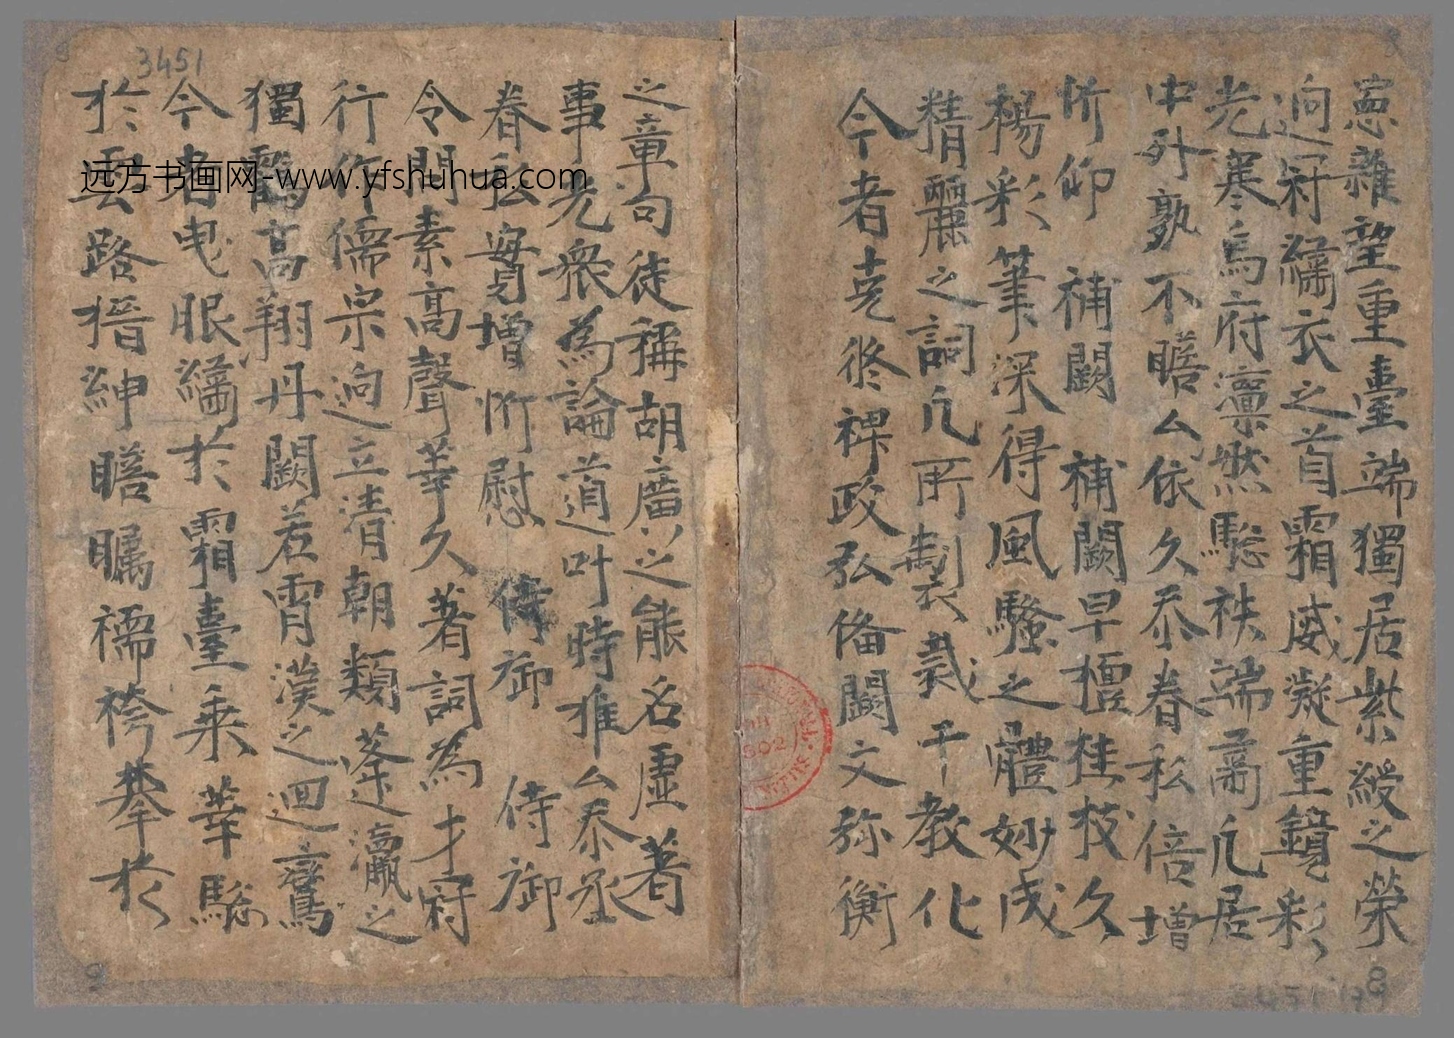 憲雜望重臺端獨居紫綬之榮
迥冠繡衣之首霜威凝重鏡彩
光寒烏府凜然驄袟端肅凡居
中外孰不瞻厶依久忝眷私倍增
忻仰 補闕 補闕早擅桂枝久
楊彩筆深得風騷之體妙成
精麗之詞凡所製裁干教化
今者克終裨政弘俻闕文弥衡
之章句徒稱胡廣之能名虛著
事光衆為論道叶時雍厶忝丞
眷私寔增忻慰 侍御 侍御
令問素高聲華久著詞為才府
行作儒宗迥立清朝類蓬瀛之
獨鶴高翔丹闕若霄漢之迴鸞
今者曳眼繡於霜臺乘華驄
於雲路搢紳瞻矚襦袴攀於
3451
9
8
远方书画网-www.yfshuhua.com